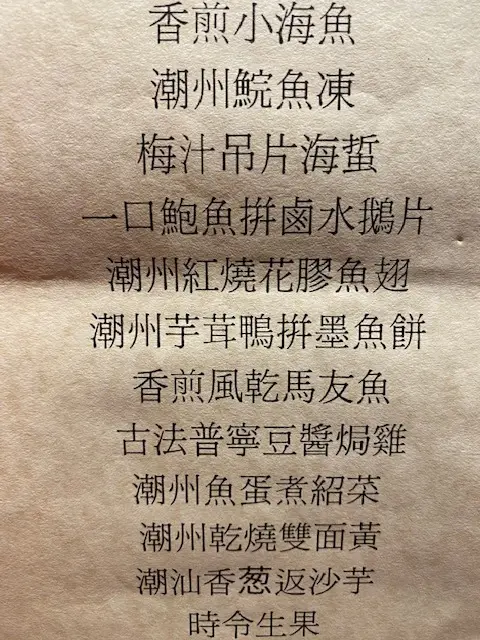 香煎小海魚
潮州鯇魚凍
梅汁吊片海蜇
一口鮑魚拼鹵水鵝片
潮州紅燒花膠魚翅
潮州芋茸鴨拼墨魚餅
香煎風乾馬友魚
古法普寧豆醬焗雞
潮州魚蛋煮紹菜
潮州乾燒雙面黃
潮汕香葱返沙芋
時令生果